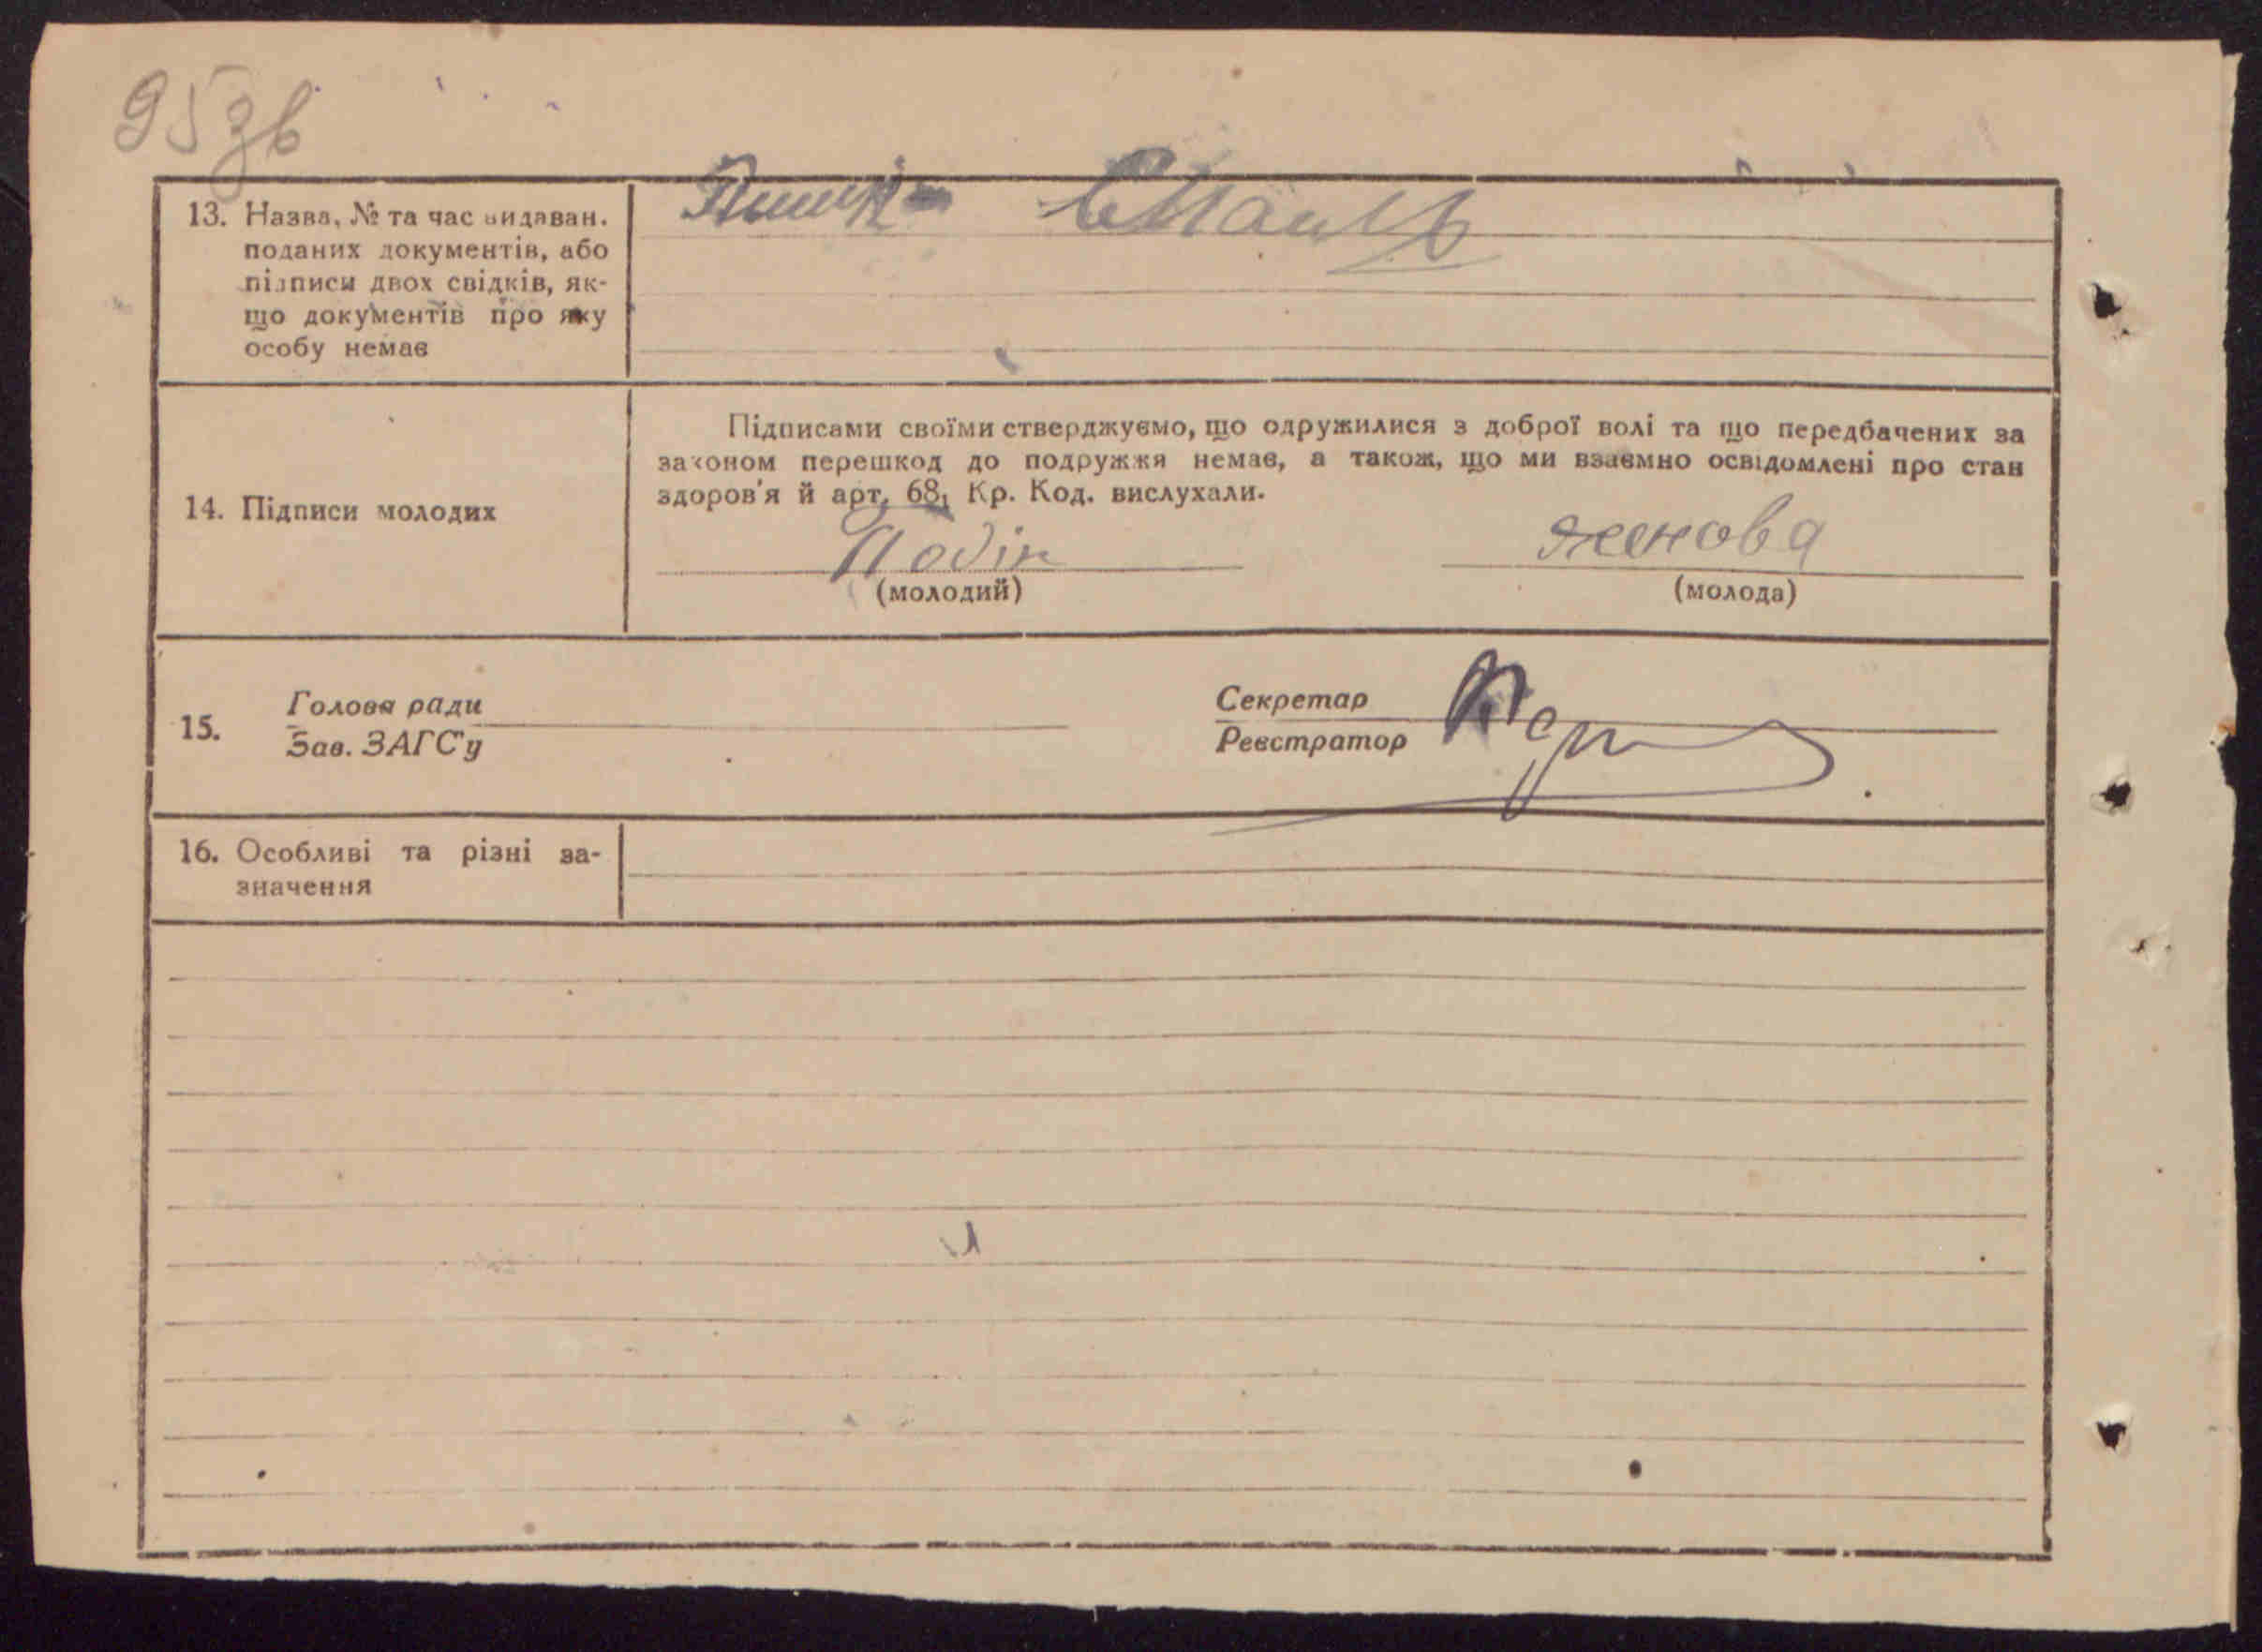 95зв
13. Назва, № та час видаван.
поданих документів, або
підписи двох свідків, як-
що документів про яку
особу немає
Підписами своїми стверджуємо, що одружилися з доброї волі та що передбачених за
законом перешкод до подружжя немає, а також, що ми взаємно освідомлені про стан
здоров'я й арт. 68₁ Кр. Код. вислухали.
14. Підписи молодих
(молодий)
(молода)
15.
Голова ради
Зав. ЗАГС'у
Секретар
Реєстратор
16. Особливі та різні за-
значення